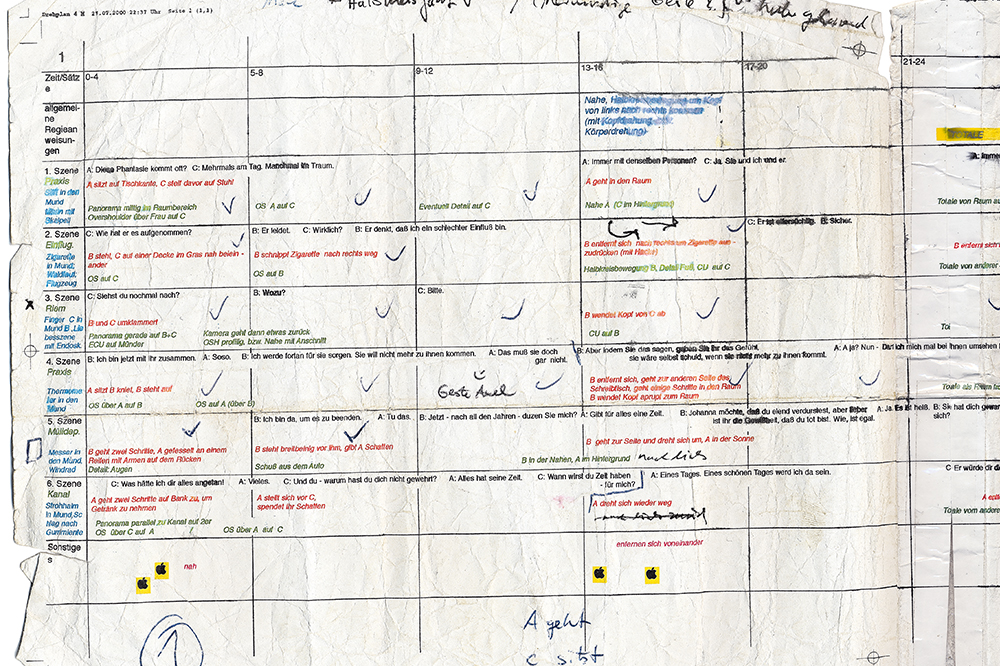 Drehplan 4 H 27.07.2000 22:37 Uhr Seite 1 (1,1)
1
Zeit/Sätz
e
0-4
5-8
9-12
13-16
17-20
21-24
allgemei-
ne
Regiean
weisun-
gen
Nahe, Halbkreisbewegung um Kopf
von links nach rechts
(mit Kopfdrehung
Körperdrehung)
1. Szene
Praxis
Stift in den
Mund
mit
Skalpell
A: Diese Phantasie kommt oft? C: Mehrmals am Tag. Manchmal im Traum.
A sitzt auf Tischkante, C steit davor auf Stuhl
Panorama mittig im Raumbereich
Overshoulder über Frau auf C
OS A auf C
Eventuell Detail auf C
A: Immer mit denselben Personen? C: Ja, Sie und ich und er.
A geht in den Raum
Nahe A (C im Hintergrund)
A: Imme
Totale von Raum au
2. Szene
Einflug.
Zigarette
in Mund;
Waldlauf;
Flugzeug
C: Wie hat er es aufgenommen?
B steht, C auf einer Decke im Gras nah beiein-
ander
OS auf C
B: Er leidet. C: Wirklich? B: Er denkt, daß ich ein schlechter Einfluß bin.
B schnippt Zigarette nach rechts weg
OS auf B
B entfernt sich nach rechts um Zigarette aus-
zudrücken (mit Hacke)
Halbkreisbewegung B, Detail Fuß, CU auf C
C: Er ist eifersüchtig. B: Sicher.
B entfernt sich
Totale von anderer
3. Szene
Riem
Finger C in
Mund B
besszene
mit Endosk.
C: Siehst du nochmal nach?
B und C umklammert
Panorama gerade auf B+C
ECU auf Münder
B: Wozu?
Kamera geht dann etwas zurück
OSH profilig, bzw. Nahe mit Anschnitt
C: Bitte.
B wendet Kopf von C ab
CU auf B
4. Szene
Praxis
Thermome
ter in den
Mund
B: Ich bin jetzt mit ihr zusammen. A: Soso. B: Ich werde fortan für sie sorgen. Sie will nicht mehr zu ihnen kommen. A: Das muß sie doch
gar nicht.
A sitzt B kniet, B steht auf
OS über A auf B OS auf A (über B)
Geste Axel
B: Aber indem Sie das sagen, geben Sie ihr das Gefühl,
sie wäre selbst schuld, wenn sie nicht mehr zu ihnen kommt.
B entfernt sich, geht zur anderen Seite des
Schreibtisch, geht einige Schritte in den Raum
B wendet Kopf aprupt zum Raum
A: A ja? Nun - Darf ich mich mal bei ihnen umsehen
Totale als Raum
5. Szene
Mülldep.
Messer in
den Mund,
Windrad
B geht zwei Schritte, A gefesselt an einem
Reifen mit Armen auf dem Rücken
Detail: Augen
B: Ich bin da, um es zu beenden. A: Tu das.
B steht breitbeinig vor ihm, gibt A Schatten
Schuß aus dem Auto
B: Jetzt - nach all den Jahren - duzen Sie mich? A: Gibt für alles eine Zeit.
B in der Nahen, A im Hintergrund
B: Johanna möchte, daß du elend verdurstest, aber lieber
ist ihr die Gewißheit, daß du tot bist. Wie, ist egal.
B geht zur Seite und dreht sich um, A in der Sonne
A: Ja. Es ist heiß. B: Sie hat dich gewar
sich?
6. Szene
Kanal
Strohhalm
in Mund,Sc
hlag nach
Gummiente
C: Was hätte ich dir alles angetan! A: Vieles. C: Und du - warum hast du dich nicht gewehrt? A: Alles hat seine Zeit. C: Wann wirst du Zeit haben
- für mich?
A geht zwei Schritte auf Bank zu, um
Getränk zu nehmen
Panorama parallel zu Kanal auf 2er
OS über C auf A / OS über A auf C
A stellt sich vor C,
spendet ihr Schatten
A: Eines Tages. Eines schönen Tages werd ich da sein.
A dreht sich wieder weg
C Er würde dir d
Totale vom andere
Sonstige
s
nah
enfernen sich voneinander
1
A geht
C sitzt